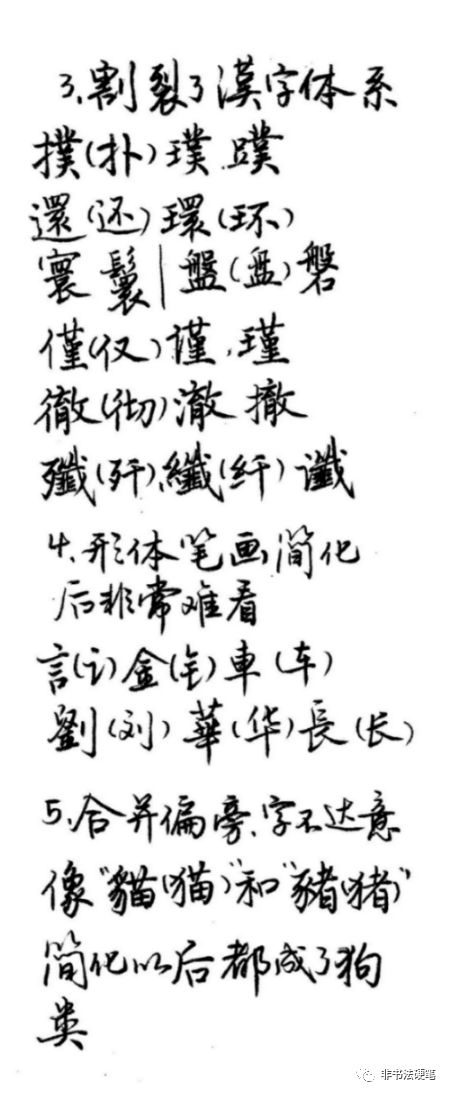 3、割裂了漢字体系
撲(扑)璞 蹼
還(还)環(环)
寰 鬟|盤(盘)磐
僅(仅)謹、瑾
徹(彻)澈 撤
殲(歼)纖(纤)讖
4、形体笔画简化
后非常难看
言(讠)金(钅)車(车)
劉(刘)華(华)長(长)
5、合并偏旁、字不达意
像"貓(猫)"和"豬(猪)"
简化以后都成了狗
类
非书法硬笔